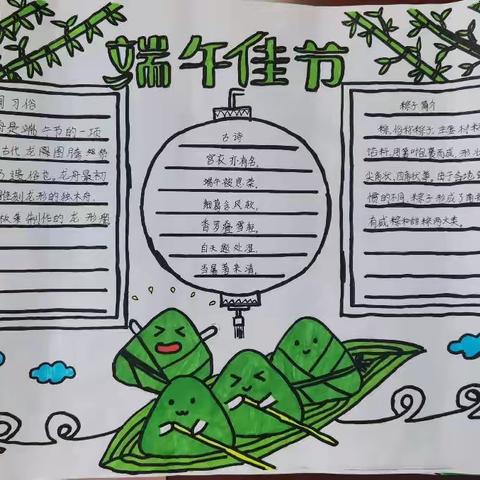 端午佳节
间习俗
舟是端午节的一项
古代龙
龙舟最初
雕刻龙形的独木舟,
制作的龙形
古诗
宫衣亦有名,
端午被恩荣。
细葛含风软,
香罗叠雪轻。
自天题处湿,
当暑著来清。
粽子简介
粽,俗称粽子,主要材料
馅料,用箬叶包裹而成,形状
尖角状、四角状等,由于各地
惯的不同,粽子形成了南
有咸粽和甜粽两大类。